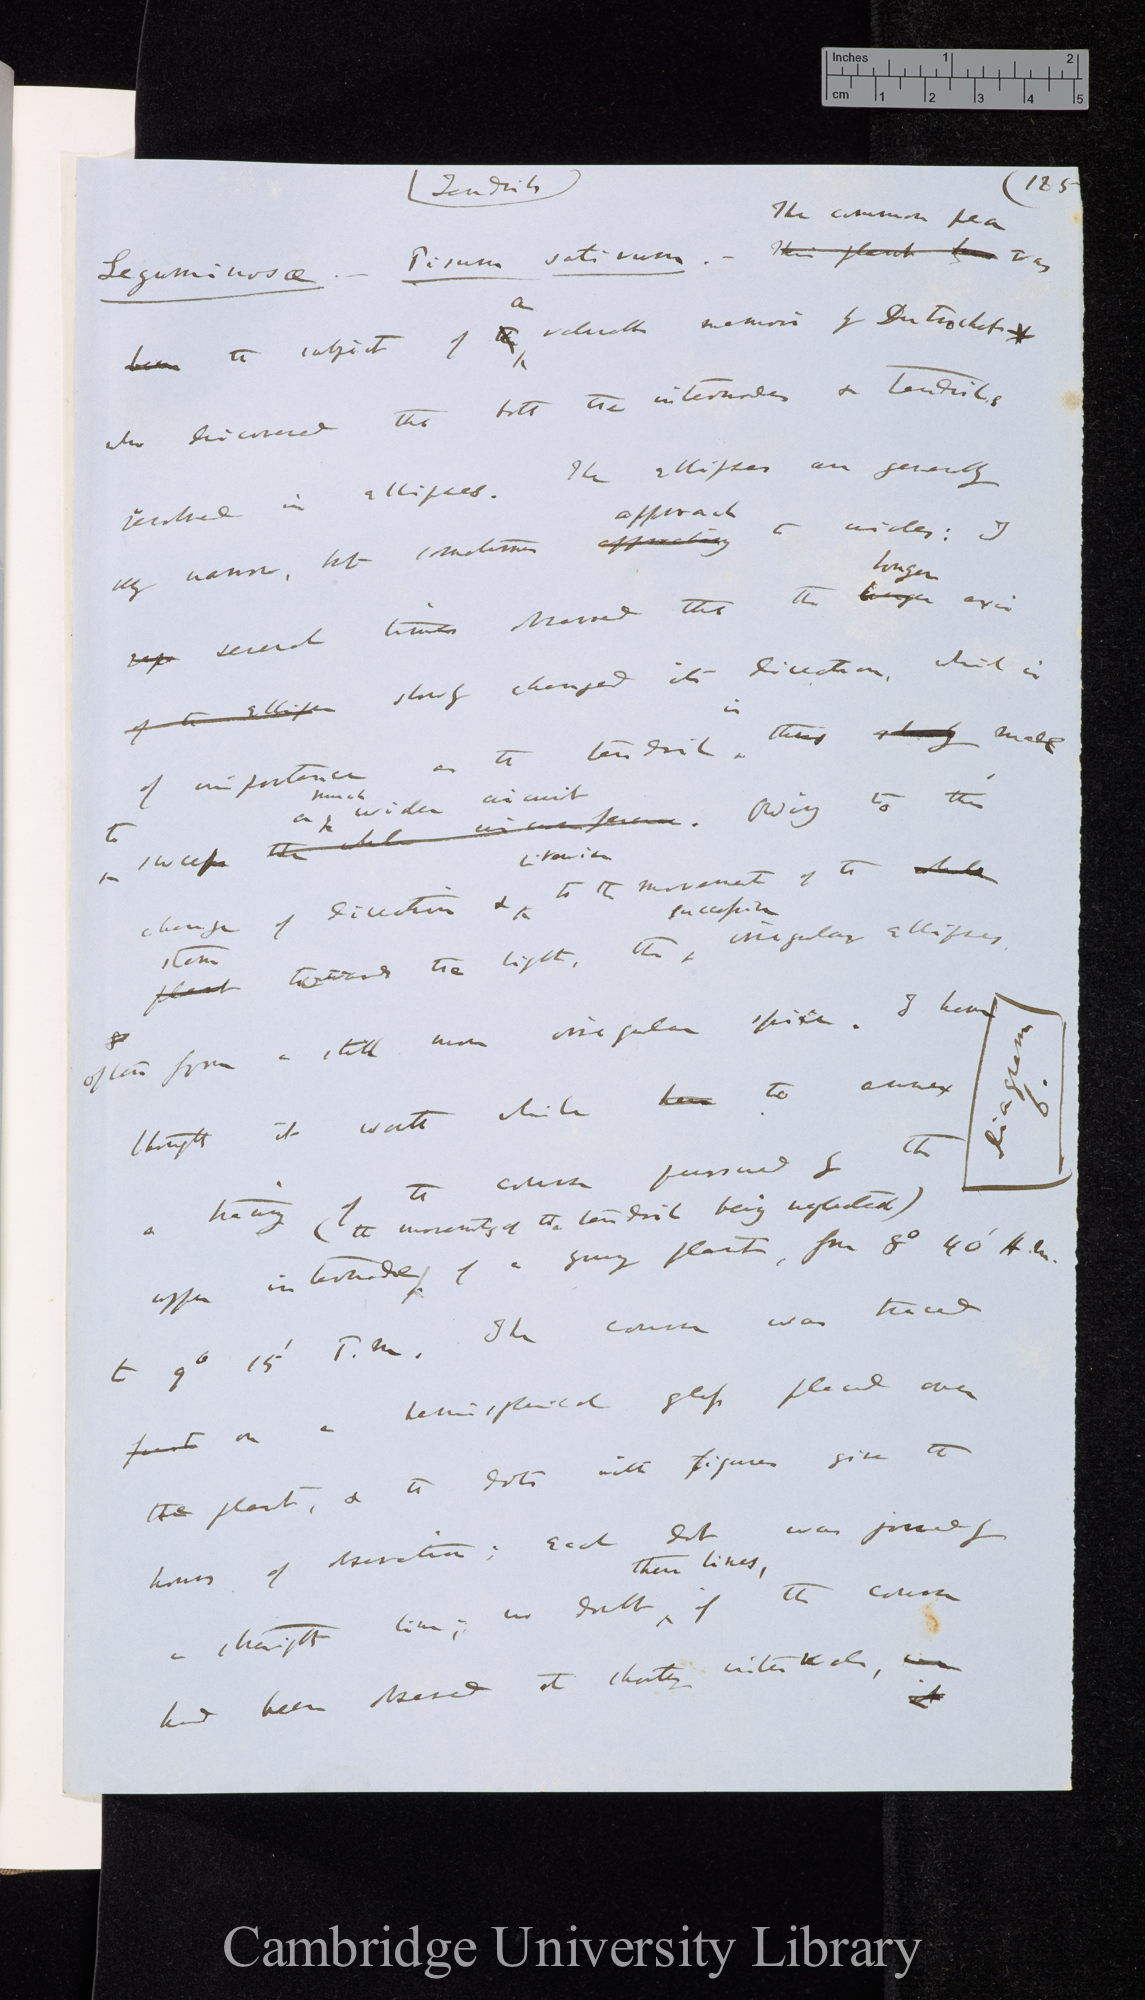 Inches 1 2
cm 1 2 3 4 5
(Tendrils) (125
The common pea
Leguminosæ. — Pisum sativum. — This plant has was
a
been the subject of a valuable memoir by Dutrochet *
who discovered that both the internodes & tendrils
revolved in ellipses. The ellipses are generally
approach
very narrow, but sometimes approaching to circles: I
longer
several times observed that the longer axis
of the ellipse slowly changed its direction, which is
in
of importance as the tendril thus slowly made
much
to a wider circuit
sweep the whole circumference. Owing to this
likewise
change of direction & to the movement of the whole
stem successive
plant towards the light, the irregular ellipses
often form a still more irregular spire. I have
diagram 6.
thought it worth while here to annex
a tracing of the course pursued by the
(the movements of the tendril being neglected)
upper internode of a young plant, from 8° 40' A.m.
to 9° 15' P.m. The course was traced
on a hemispherical glass placed over
the plant, & the dots with figures give the
hours of observation; each dot was joined by
these lines,
a straight line; no doubt if the course
had been observed at shorter intervals,
Cambridge University Library